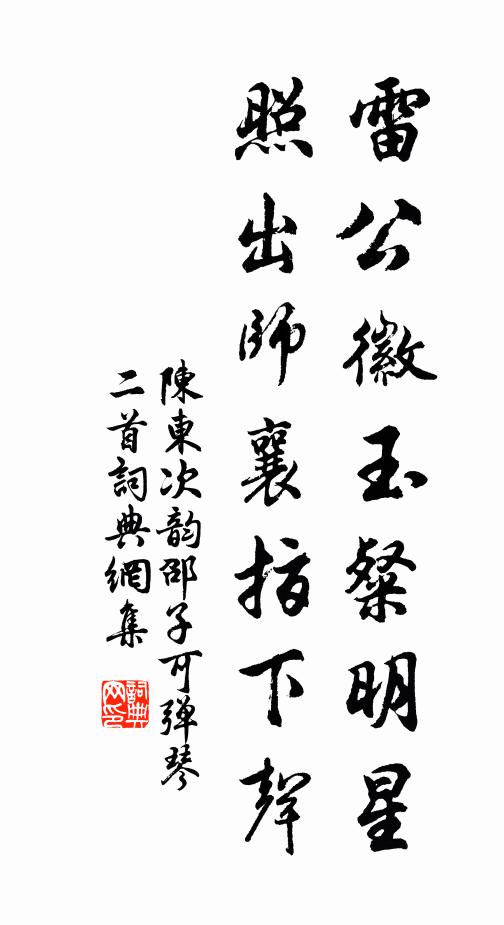 雷公徽玉粲明星
照出師襄指下聲
陳東次韵邵子可弹琴
二首詞典網集
詞典
网印